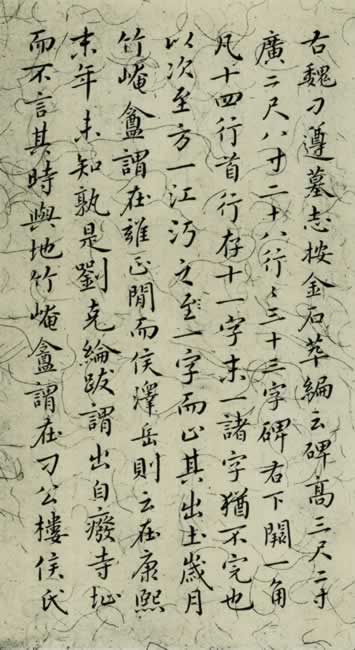 右魏刁遵墓志按金石萃編云碑高三尺二寸
廣二尺八寸二十八行〻三十三字碑右下闕一角
凡十四行首行存十一字末一諸字猶不完也
以次至方一江沔之至一字而止其出土歲月
竹崦盫謂在雍正閒而侯澤岳則云在康熙
末年未知孰是劉克綸跋謂出自廢寺址
而不言其時與地竹崦盫謂在刁公樓侯氏